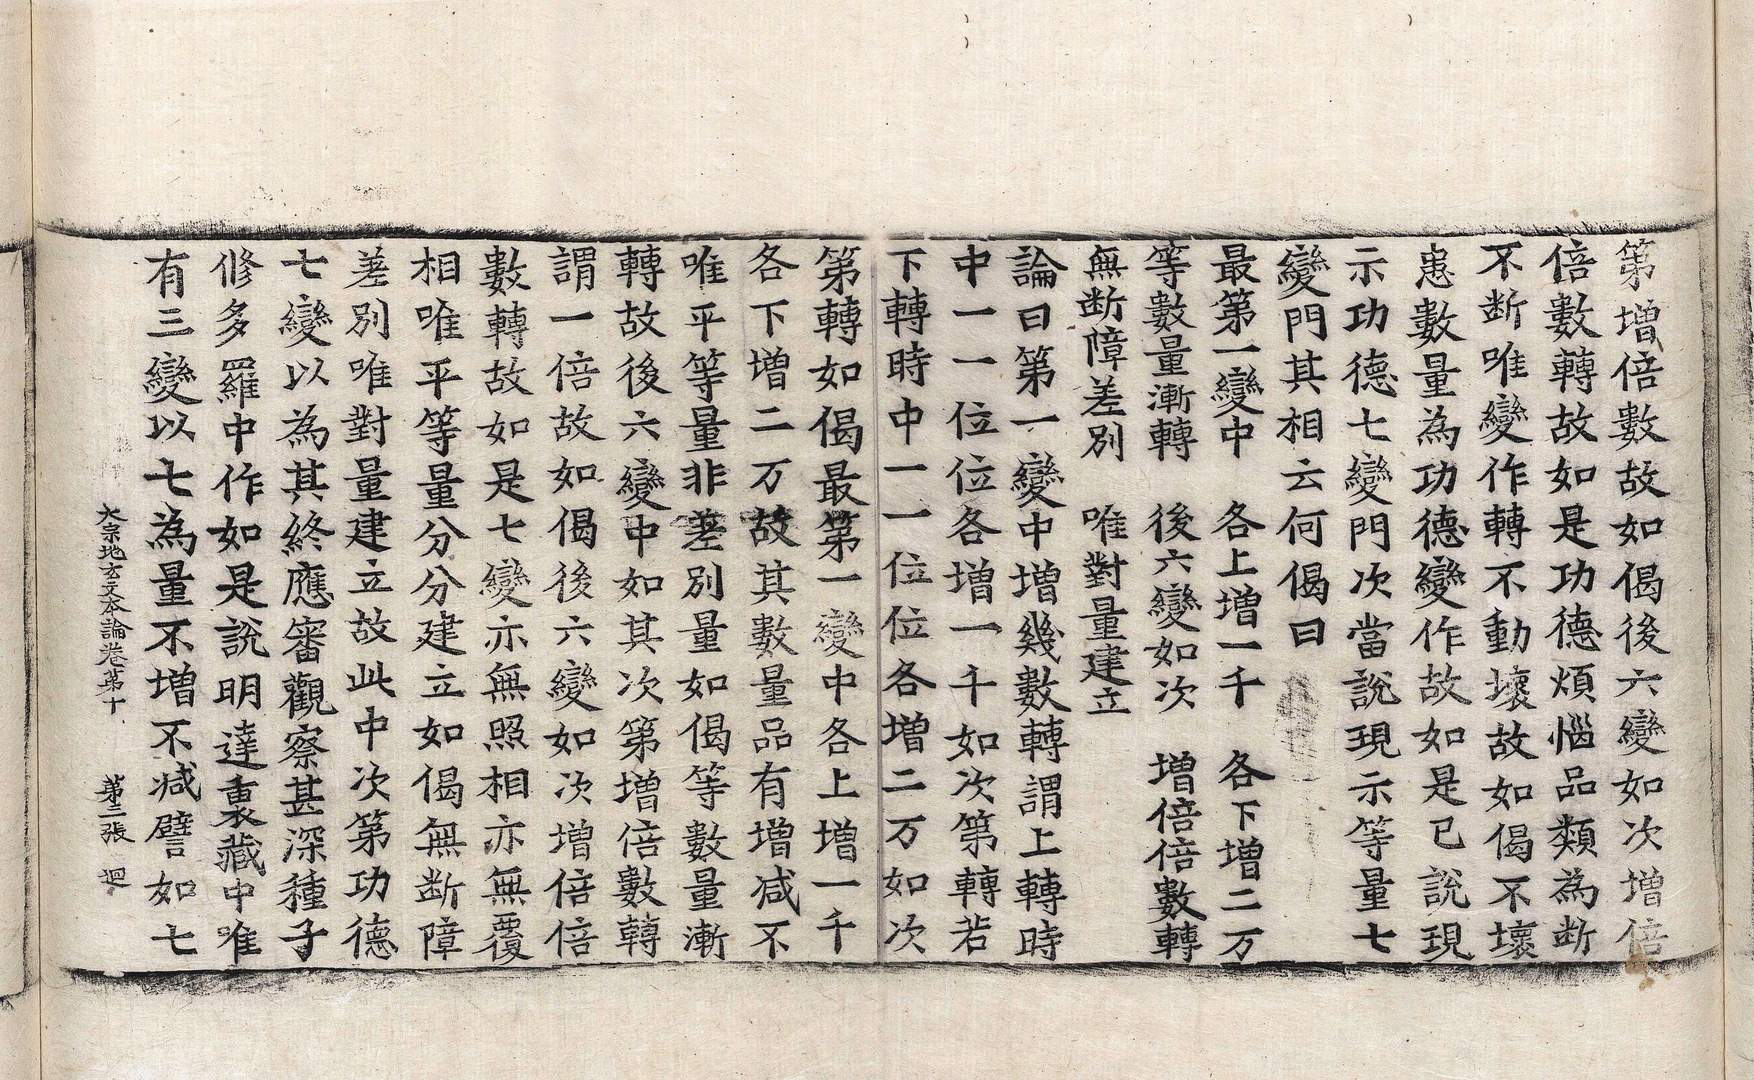 第增倍數故如偈後六變如次增倍
倍數轉故如是功德煩惱品類為断
不断唯變作轉不動壞故如偈不壞
恚數量為功德變作故如是已說現
示功德七變門次當說現示等量七
變門其相云何偈曰
最第一變中　各上增一千　各下增二万
等數量漸轉　後六變如次　增倍倍數轉
無断障差別　唯對量建立
論曰第一變中增幾數轉謂上轉時
中一一位位各增一千如次第轉若
下轉時中一一位位各增二万如次
第轉如偈最第一變中各上增一千
各下增二万故其數量品有增減不
唯平等量非差別量如偈等數量漸
轉故後六變中如其次第增倍數轉
謂一倍故如偈後六變如次增倍倍
數轉故如是七變亦無照相亦無覆
相唯平等量分分建立如偈無断障
差別唯對量建立故此中次第功德
七變以為其終應審觀察甚深種子
修多羅中作如是說明達裏藏中唯
有三變以七為量不增不減譬如七
大宗地玄文本論卷第十　第三張　迴